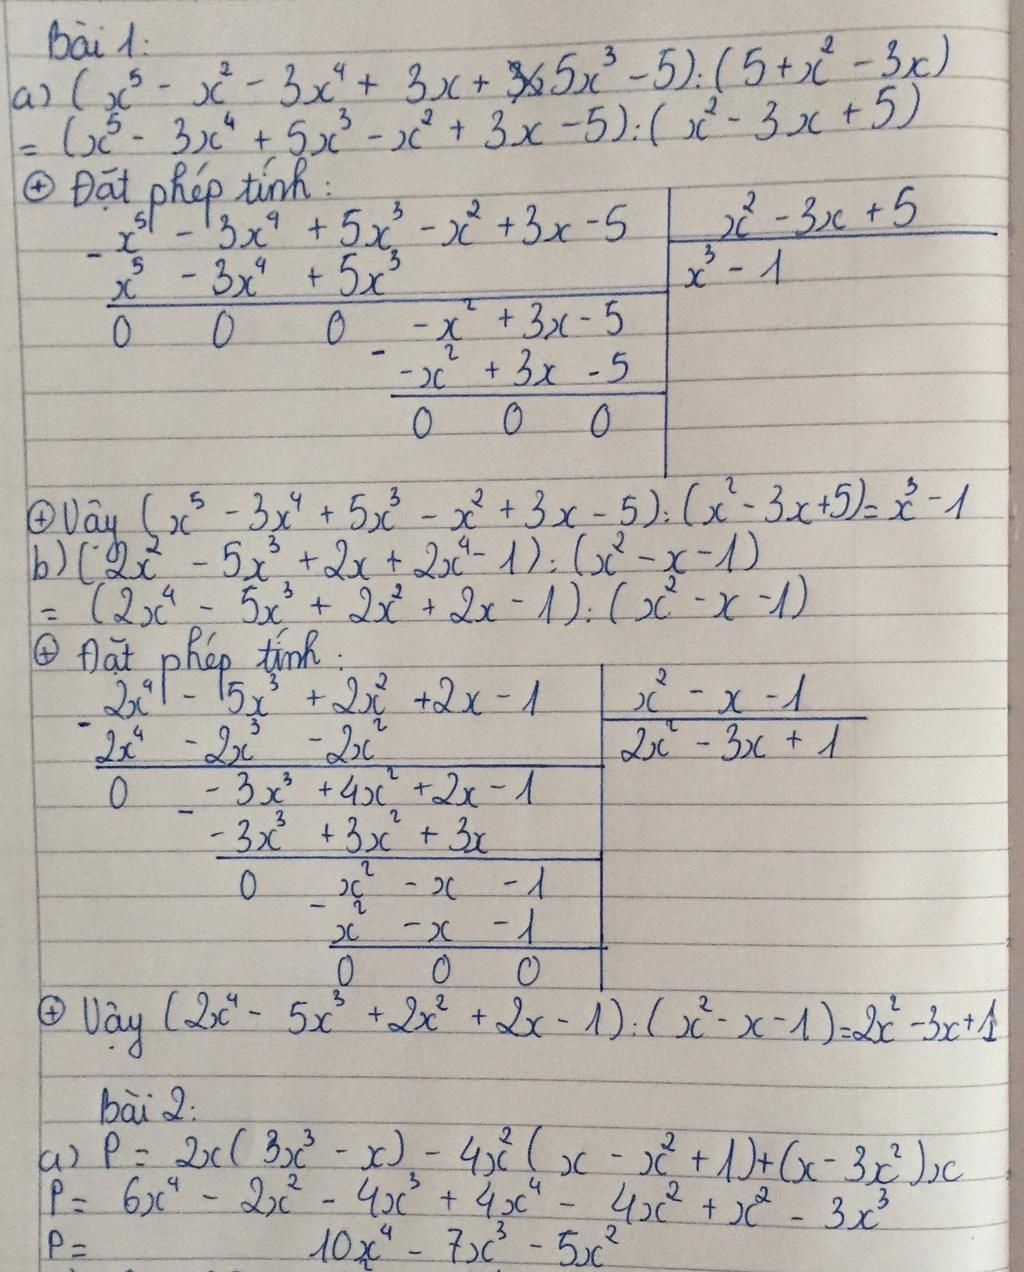 Bài 1:
a) (x⁵ - x² - 3x⁴ + 3x + 5x³ - 5) : (5 + x² - 3x)
= (x⁵ - 3x⁴ + 5x³ - x² + 3x - 5) : (x² - 3x + 5)
⊕ Đặt phép tính :
- x⁵ - 3x⁴ + 5x³ - x² + 3x - 5 | x² - 3x + 5
x⁵ - 3x⁴ + 5x³ | x³ - 1
0 0 0 - x² + 3x - 5
- - x² + 3x - 5
0 0 0
⊕ Vậy (x⁵ - 3x⁴ + 5x³ - x² + 3x - 5) : (x² - 3x + 5) = x³ - 1
b) (2x² - 5x³ + 2x + 2x⁴ - 1) : (x² - x - 1)
= (2x⁴ - 5x³ + 2x² + 2x - 1) : (x² - x - 1)
⊕ Đặt phép tính :
- 2x⁴ - 5x³ + 2x² + 2x - 1 | x² - x - 1
2x⁴ - 2x³ - 2x² | 2x² - 3x + 1
0 - - 3x³ + 4x² + 2x - 1
- 3x³ + 3x² + 3x
0 x² - x - 1
- x² - x - 1
0 0 0
⊕ Vậy (2x⁴ - 5x³ + 2x² + 2x - 1) : (x² - x - 1) = 2x² - 3x + 1
Bài 2:
a) P = 2x(3x³ - x) - 4x²(x - x² + 1) + (x - 3x²)x
P = 6x⁴ - 2x² - 4x³ + 4x⁴ - 4x² + x² - 3x³
P = 10x⁴ - 7x³ - 5x²